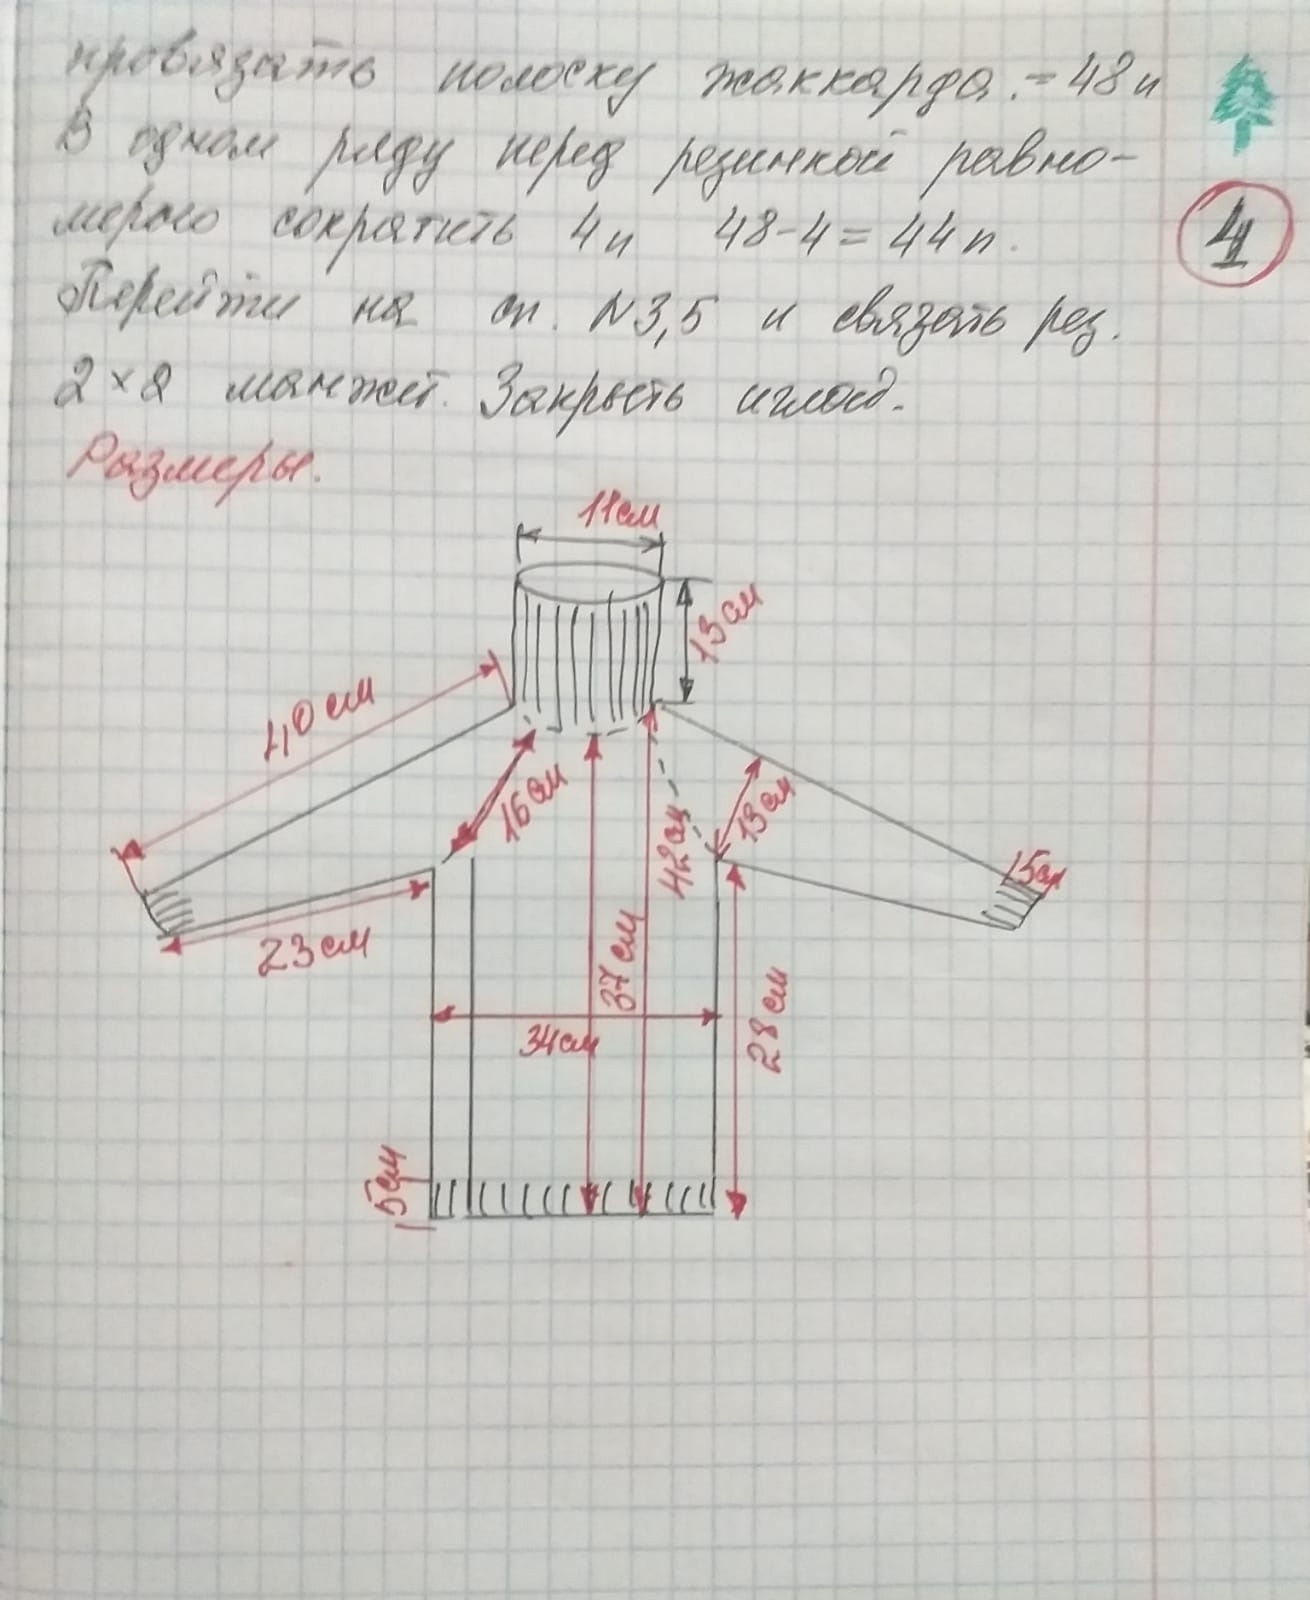 провязать полоску жаккарда. = 48 п
В одном ряду перед резинкой равно-
мерого сократить 4 п 48-4=44 п.
Перейти на сп. N3,5 и связать рез.
2×2 манжет. Закрыть иглой.
4
Размеры.
11см
13см
40см
16см
13см
42см
5см
23см
37см
34см
28см
5см